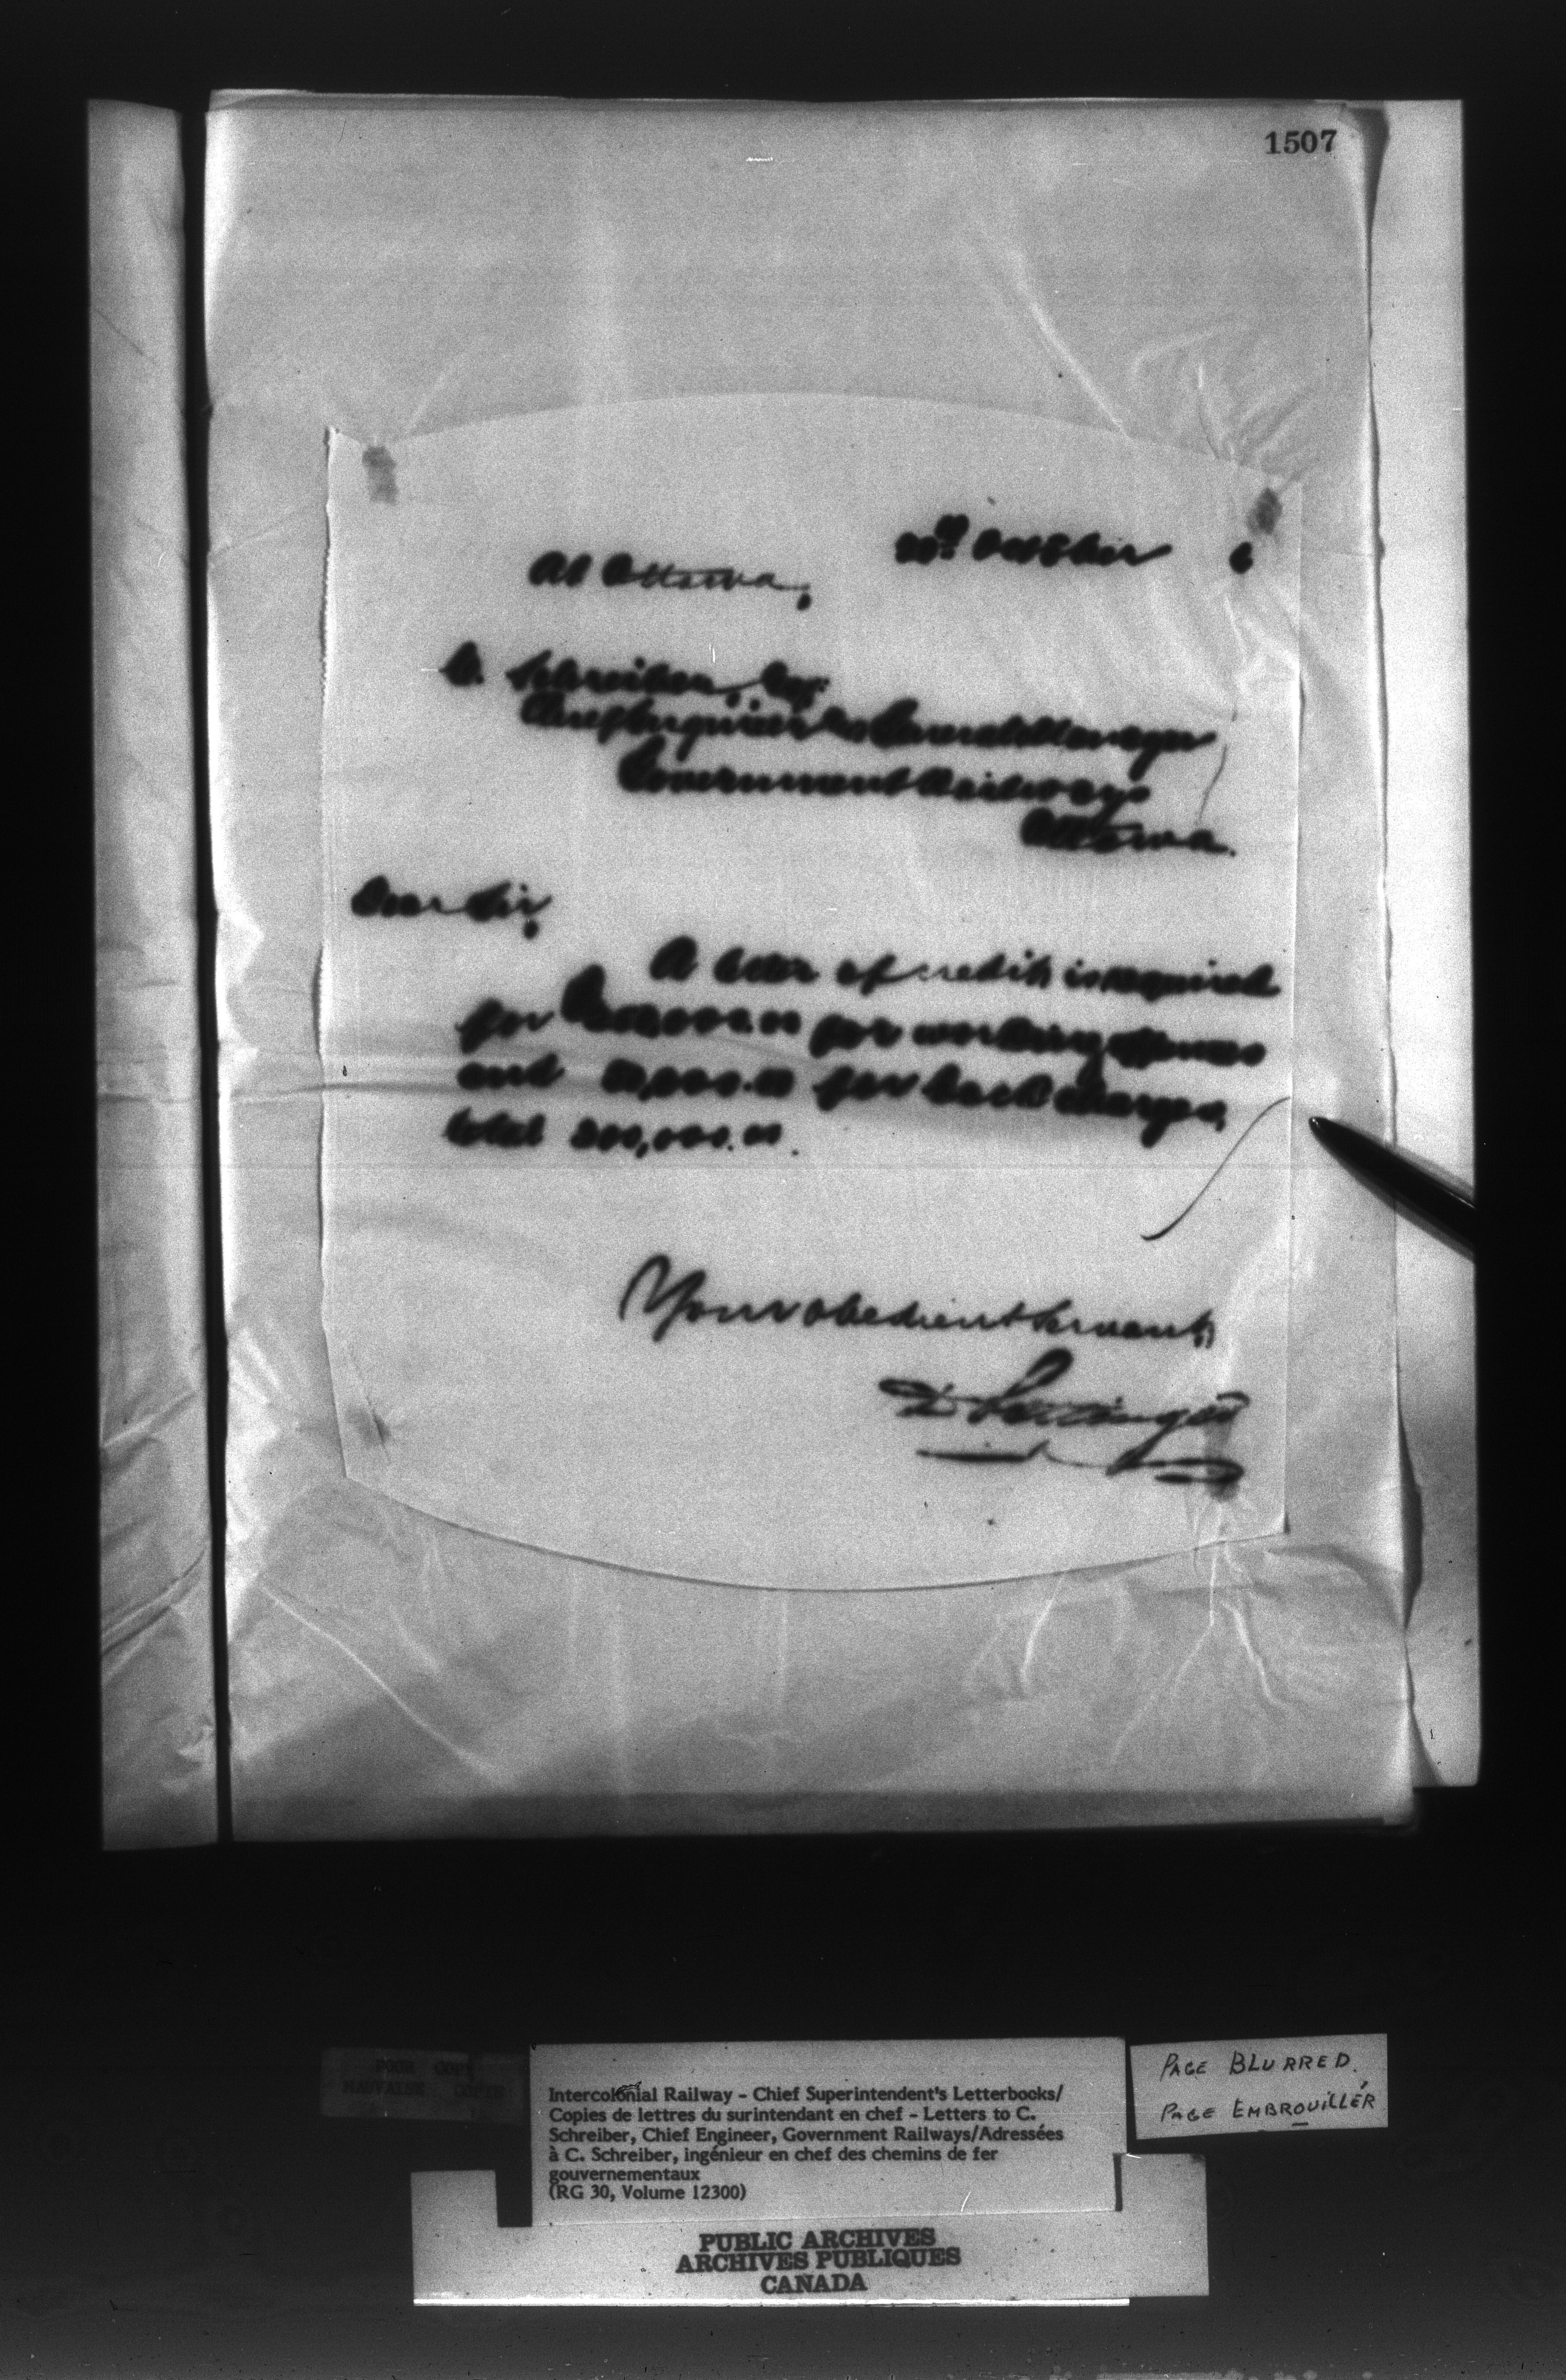 1507
At Ottawa,
October 6
C. Schreiber, Esq.
Chief Engineer & General Manager
Government Railways
Ottawa.
Dear Sir,
A letter of credit is required
for for working expenses
and for back charges,
total 200,000.00.
Your obedient Servant,
D. Pottinger
POOR COPY
MAUVAISE COPIE
Intercolonial Railway - Chief Superintendent's Letterbooks/
Copies de lettres du surintendant en chef - Letters to C.
Schreiber, Chief Engineer, Government Railways/Adressées
à C. Schreiber, ingénieur en chef des chemins de fer
gouvernementaux
(RG 30, Volume 12300)
PAGE BLURRED.
PAGE EMBROUILLÉR
PUBLIC ARCHIVES
ARCHIVES PUBLIQUES
CANADA